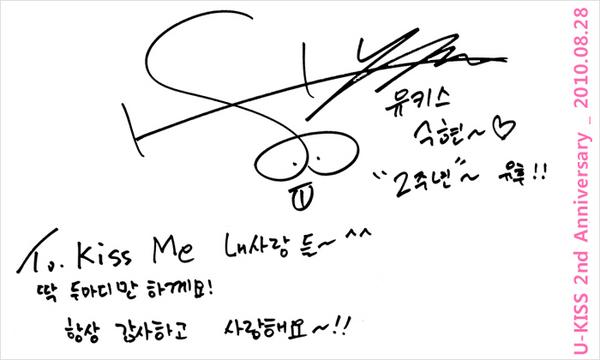 유키스
수현~♡
"2주년"~ 유후!!
To. Kiss Me 내사랑 들~^^
딱 두마디만 하께요!
항상 감사하고 사랑해요~!!
U-KISS 2nd Anniversary _ 2010.08.28